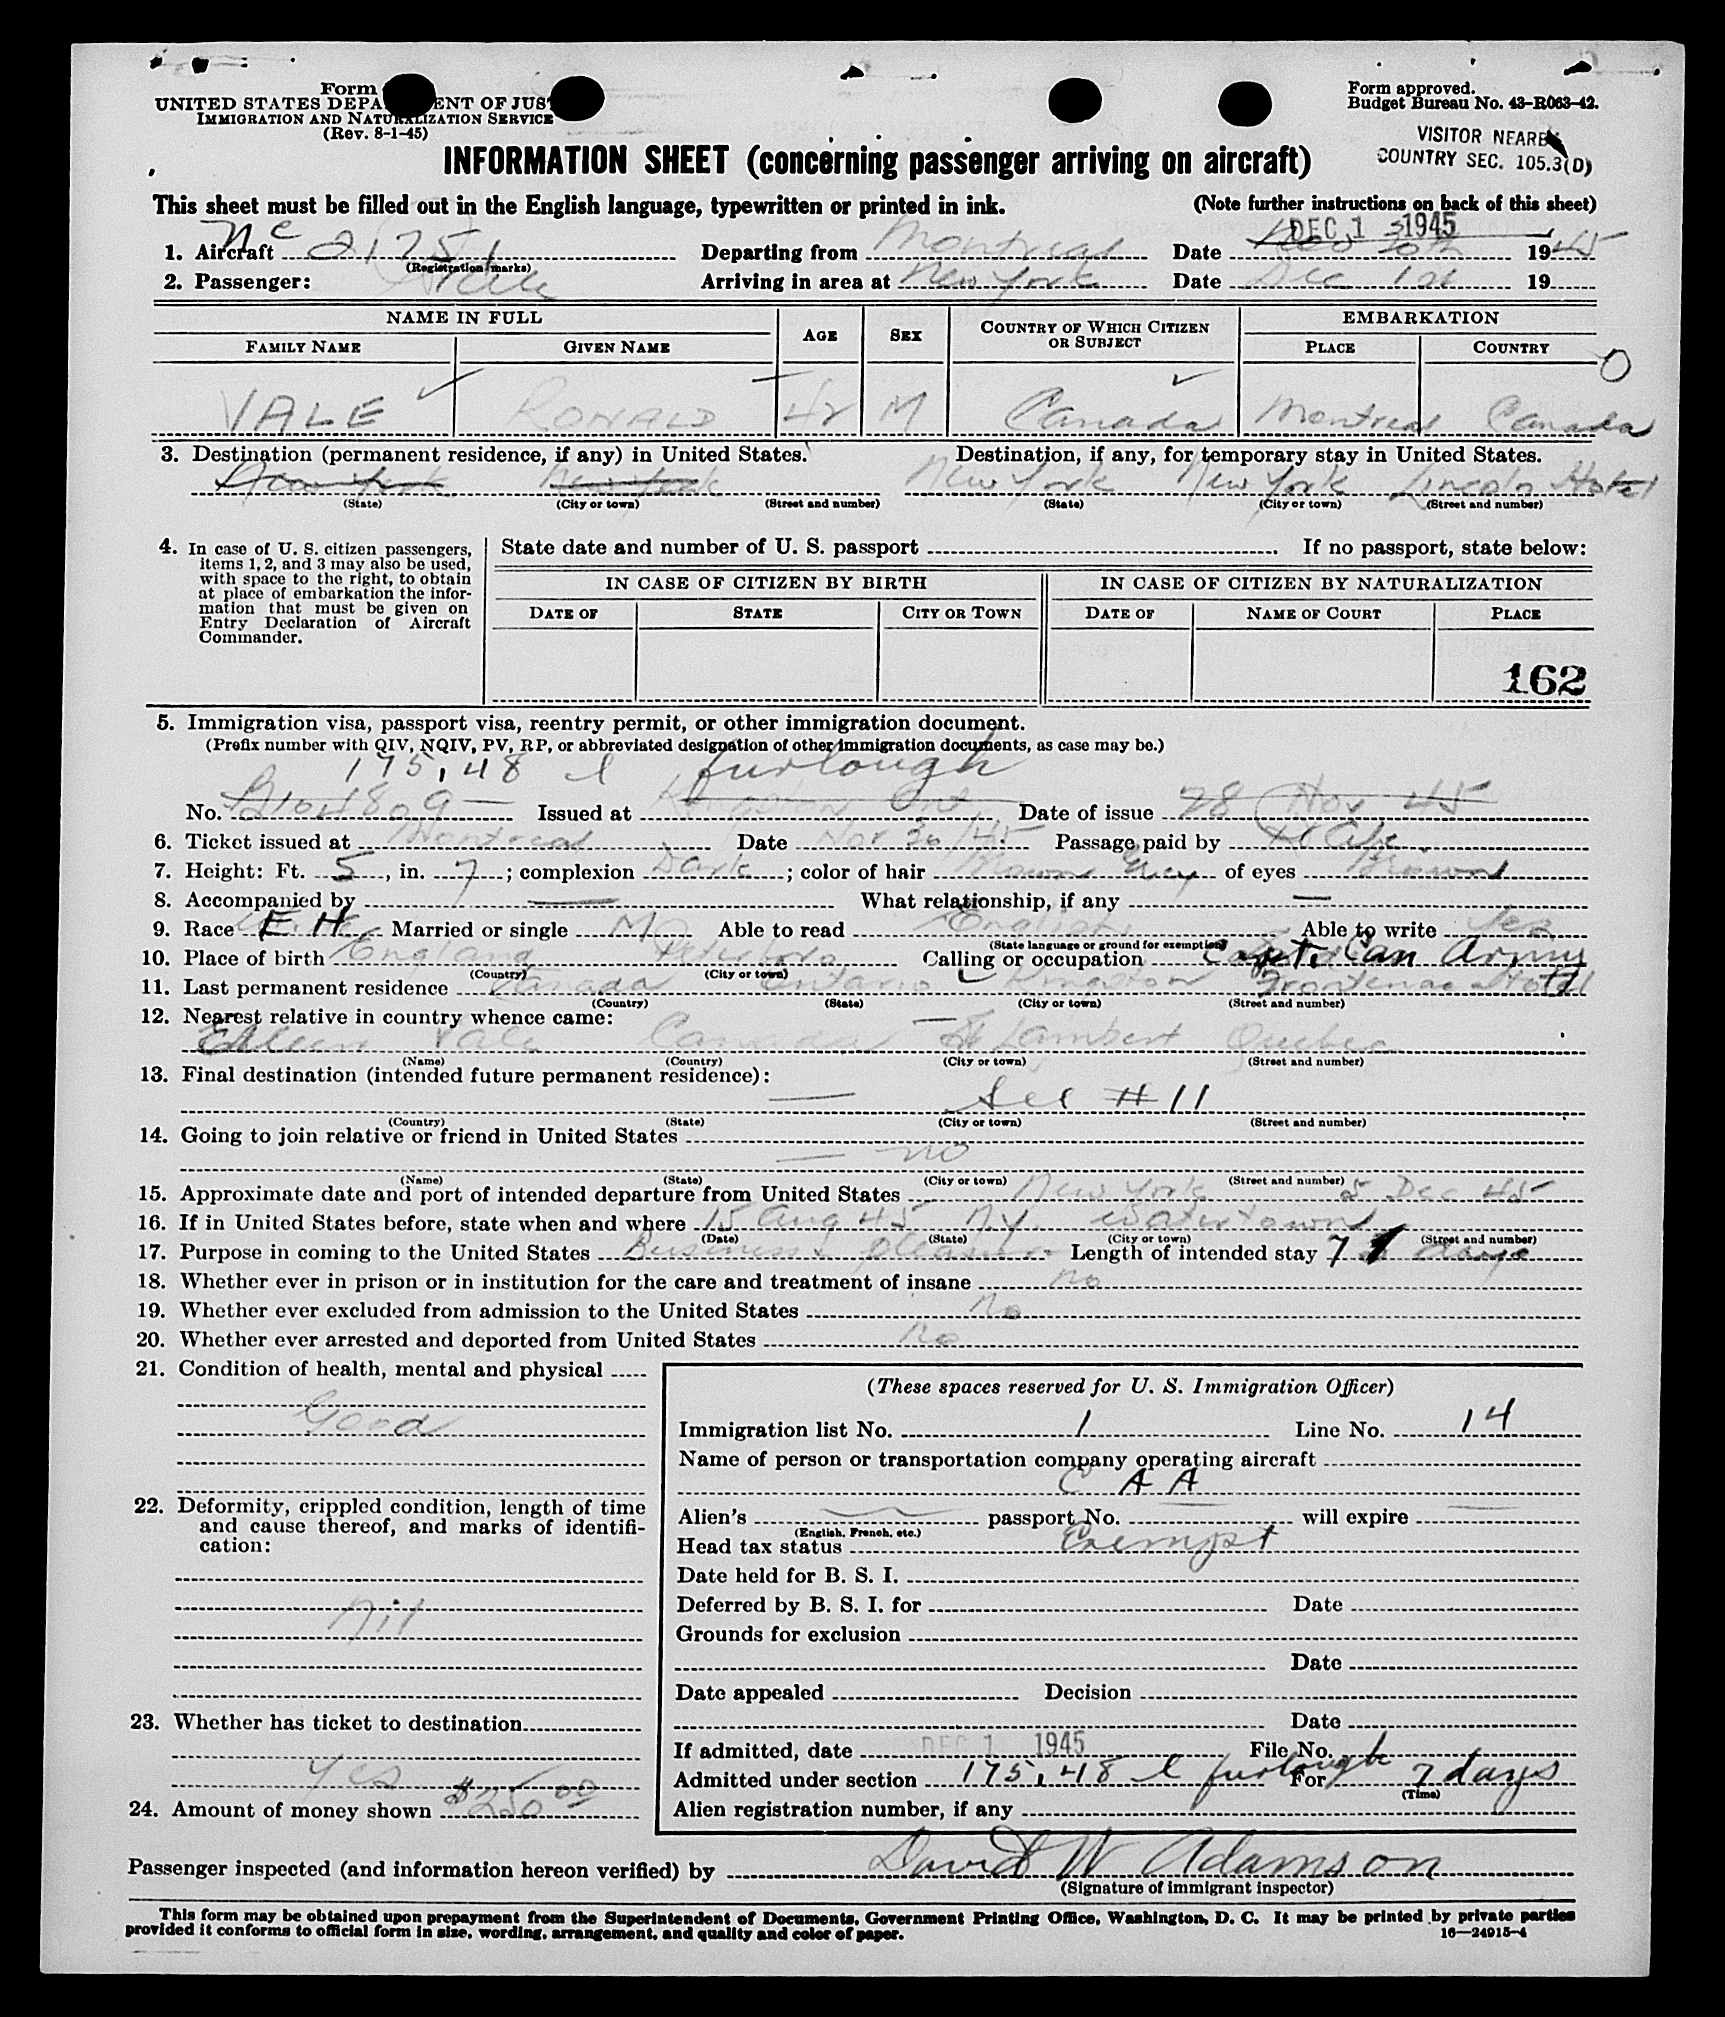 Form
UNITED STATES DEPA ENT OF JUS
IMMIGRATION AND NATURALIZATION SERVICE
(Rev. 8-1-45)
Form approved.
Budget Bureau No. 43-R063-42.
VISITOR NEARBY
COUNTRY SEC. 105.3(D)
INFORMATION SHEET (concerning passenger arriving on aircraft)
This sheet must be filled out in the English language, typewritten or printed in ink. (Note further instructions on back of this sheet)
DEC 1 1945
1. Aircraft NC 21751 Departing from Montreal Date Nov 30th 1945
(Registration marks)
2. Passenger: Arriving in area at New York Date Dec 1st 19
NAME IN FULL AGE SEX COUNTRY OF WHICH CITIZEN OR SUBJECT EMBARKATION
FAMILY NAME GIVEN NAME PLACE COUNTRY
VALE RONALD 42 M Canada Montreal Canada
3. Destination (permanent residence, if any) in United States. Destination, if any, for temporary stay in United States.
New York New York New York New York Lincoln Hotel
(State) (City or town) (Street and number) (State) (City or town) (Street and number)
4. In case of U. S. citizen passengers, items 1, 2, and 3 may also be used, with space to the right, to obtain at place of embarkation the information that must be given on Entry Declaration of Aircraft Commander.
State date and number of U. S. passport If no passport, state below:
IN CASE OF CITIZEN BY BIRTH IN CASE OF CITIZEN BY NATURALIZATION
DATE OF STATE CITY OR TOWN DATE OF NAME OF COURT PLACE
162
5. Immigration visa, passport visa, reentry permit, or other immigration document.
(Prefix number with QIV, NQIV, PV, RP, or abbreviated designation of other immigration documents, as case may be.)
175.48 l furlough
No. B104809 Issued at Kingston Ont Date of issue 28 Nov 45
6. Ticket issued at Montreal Date Nov 30/45 Passage paid by
7. Height: Ft. 5, in. 7; complexion Dark; color of hair Brown Grey of eyes Brown
8. Accompanied by — What relationship, if any —
9. Race E H Married or single M Able to read English Able to write Yes
(State language or ground for exemption)
10. Place of birth England Peterboro Calling or occupation Capt. Can Army
(Country) (City or town)
11. Last permanent residence Canada Ontario Kingston Frontenac Hotel
(Country) (State) (City or town) (Street and number)
12. Nearest relative in country whence came:
Eileen Vale Canada St Lambert Quebec
(Name) (Country) (City or town) (Street and number)
13. Final destination (intended future permanent residence):
— See #11
(Country) (State) (City or town) (Street and number)
14. Going to join relative or friend in United States
— no
(Name) (State) (City or town) (Street and number)
15. Approximate date and port of intended departure from United States New York 5 Dec 45
16. If in United States before, state when and where 15 Aug 45 N.Y. Watertown
(Date) (State) (City or town) (Street and number)
17. Purpose in coming to the United States Business & pleasure Length of intended stay 7 days
18. Whether ever in prison or in institution for the care and treatment of insane no
19. Whether ever excluded from admission to the United States No
20. Whether ever arrested and deported from United States No
21. Condition of health, mental and physical
Good
22. Deformity, crippled condition, length of time
and cause thereof, and marks of identifi-
cation:
Nil
23. Whether has ticket to destination
Yes
24. Amount of money shown $250.00
(These spaces reserved for U. S. Immigration Officer)
Immigration list No. 1 Line No. 14
Name of person or transportation company operating aircraft
C A A
Alien's — passport No. — will expire —
(English, French, etc.)
Head tax status Exempt
Date held for B. S. I.
Deferred by B. S. I. for Date
Grounds for exclusion
Date
Date appealed Decision
Date
If admitted, date DEC 1 1945 File No.
Admitted under section 175.48 l furlough For 7 days
(Time)
Alien registration number, if any
Passenger inspected (and information hereon verified) by David W Adamson
(Signature of immigrant inspector)
This form may be obtained upon prepayment from the Superintendent of Documents, Government Printing Office, Washington, D. C. It may be printed by private parties
provided it conforms to official form in size, wording, arrangement, and quality and color of paper. 16—24915-4